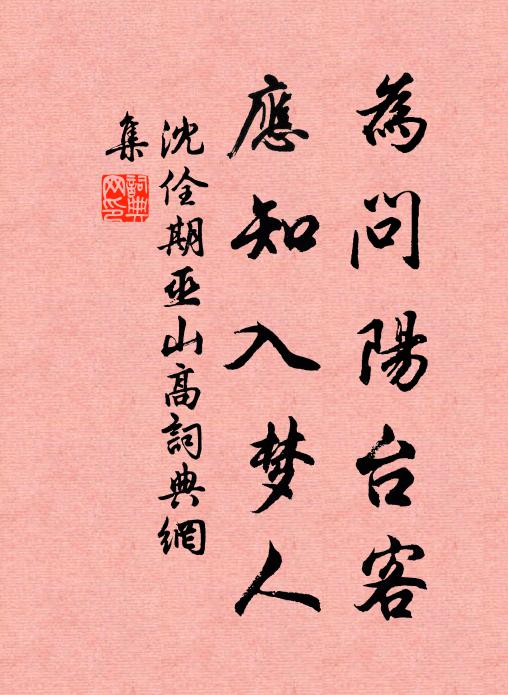 為问陽台客
應知入梦人
沈佺期巫山高詞典網
集
詞典
网印